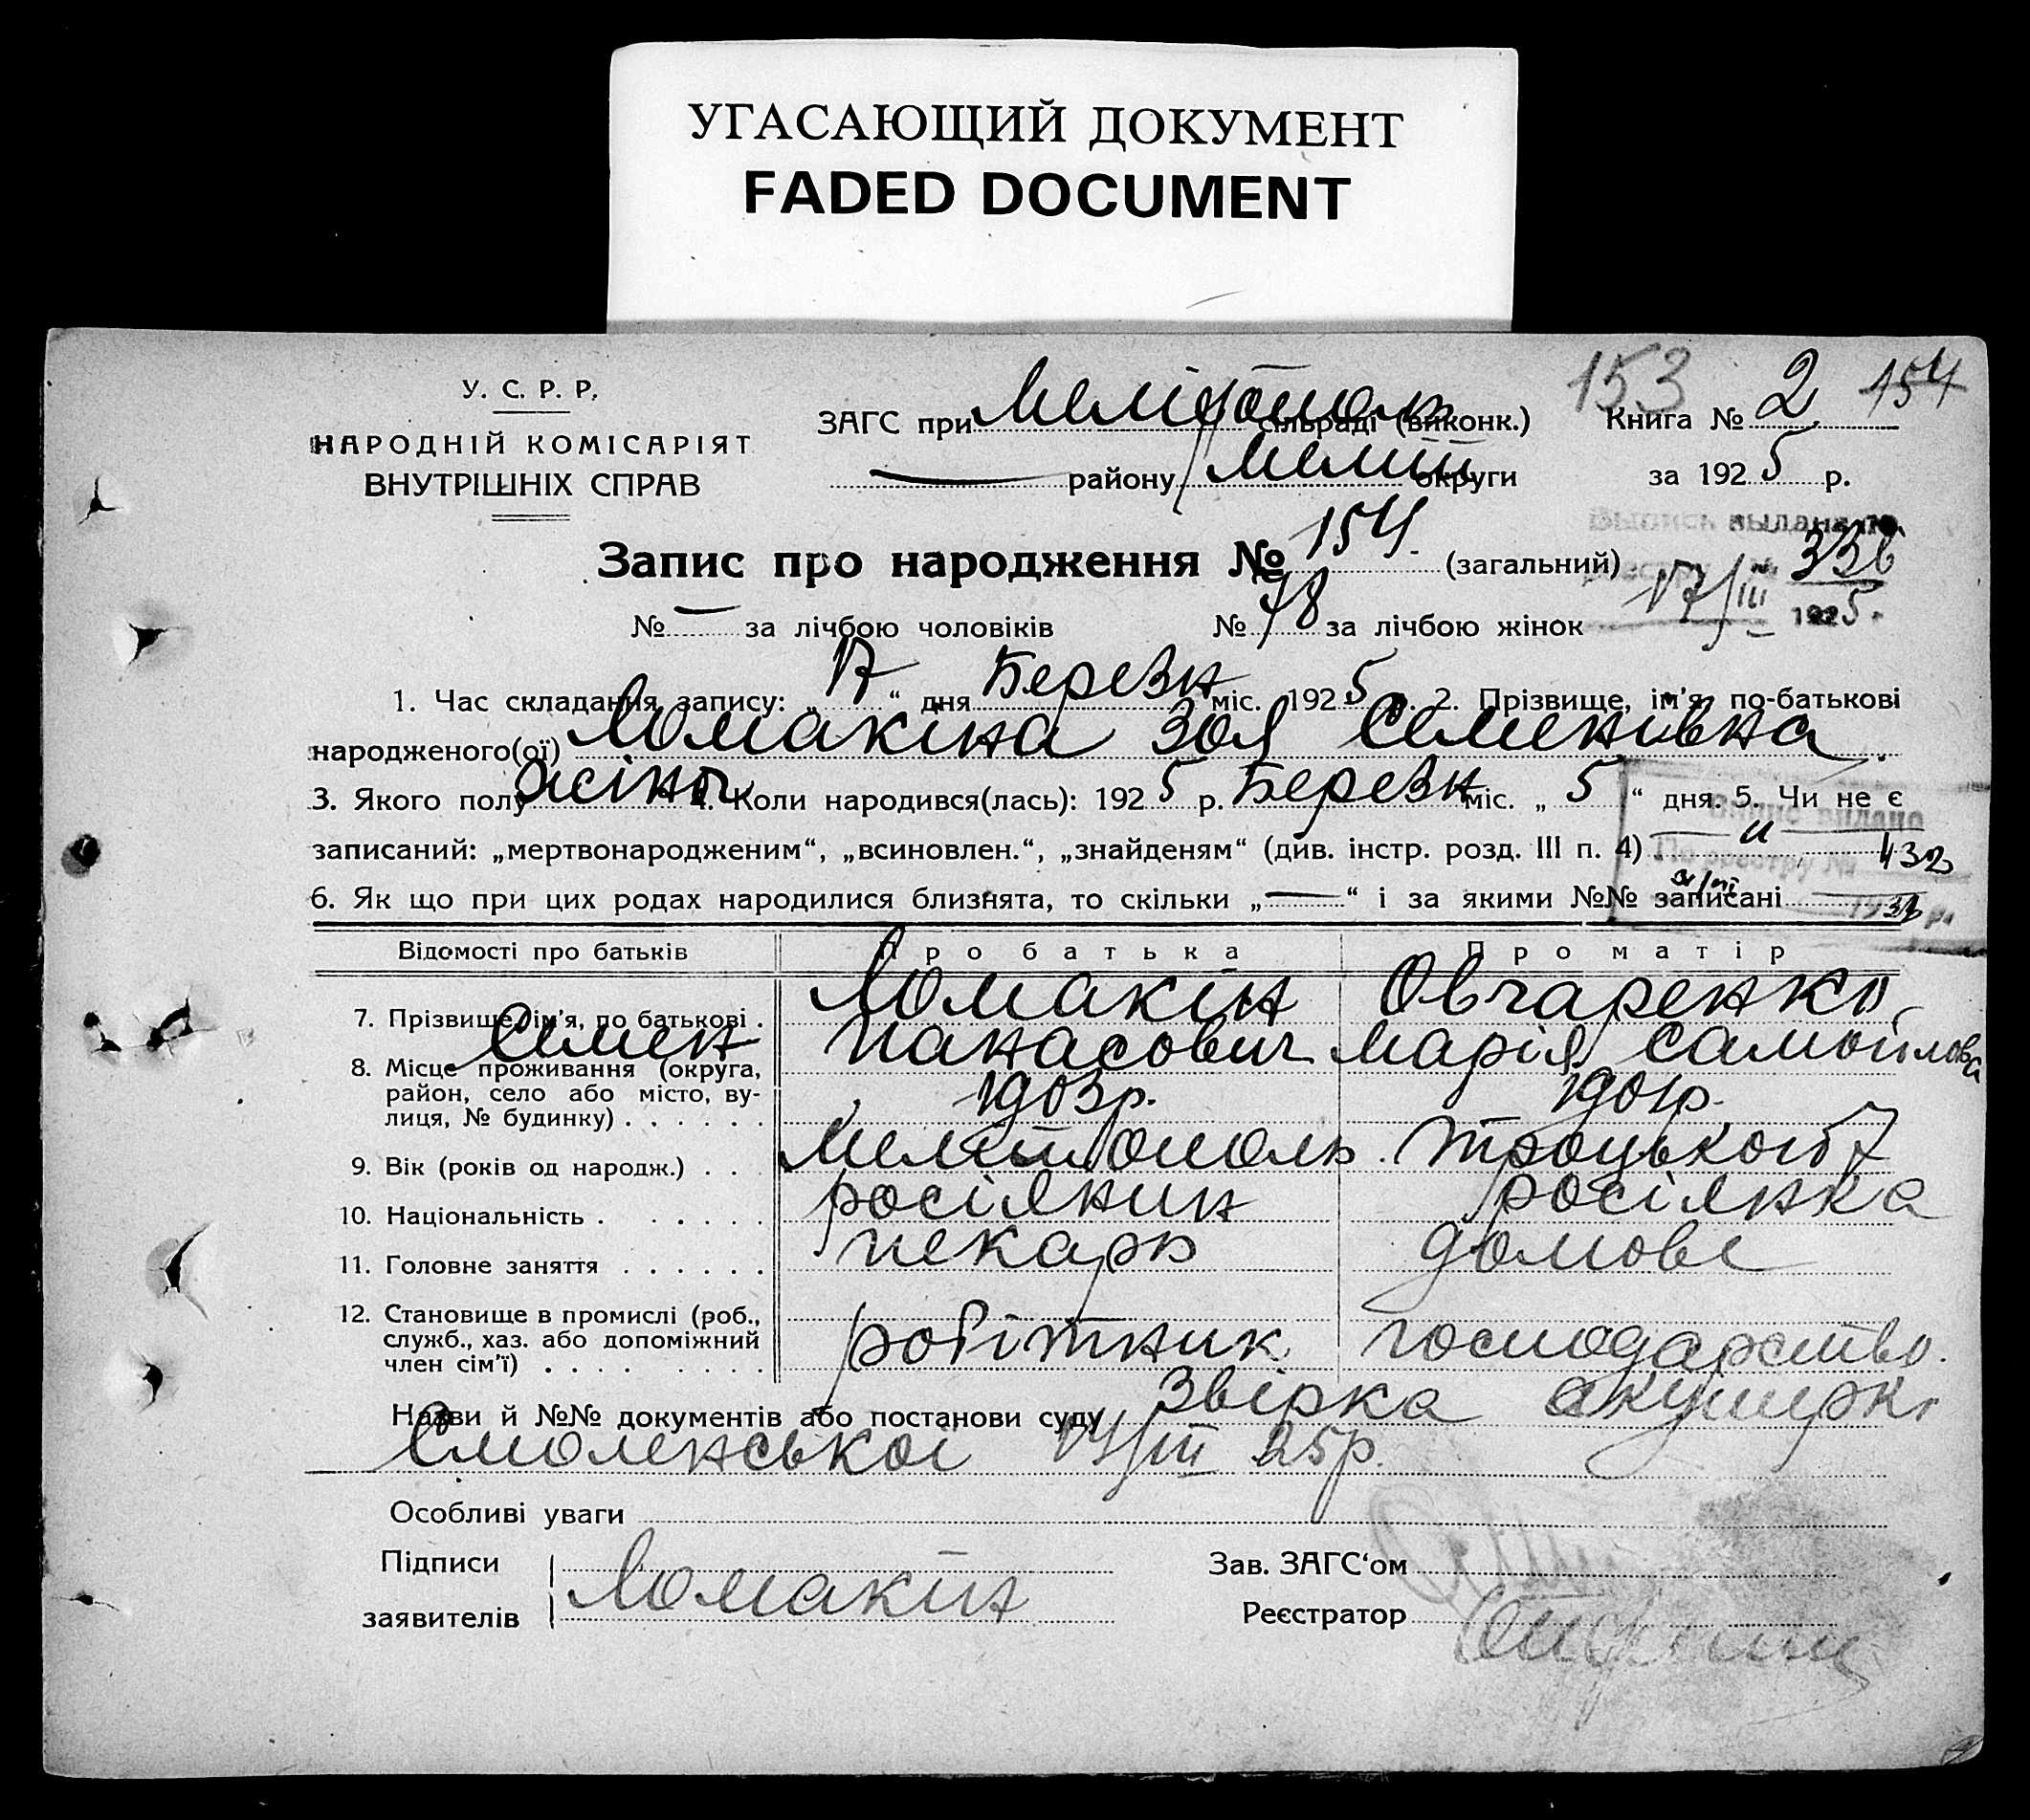 УГАСАЮЩИЙ ДОКУМЕНТ
FADED DOCUMENT
У. С. Р. Р.
НАРОДНІЙ КОМІСАРІЯТ
ВНУТРІШНІХ СПРАВ
153 154
ЗАГС при Мелітополь сільраді (виконк.) Книга № 2
— району Меліт округи за 1925 р.
Выпись выдана по
Запис про народження № 154 (загальний)
реестру № 336
17/III 1925
№ — за лічбою чоловіків № 78 за лічбою жінок
1. Час складання запису: „17“ дня Березн міс. 1925 р. 2. Прізвище, ім'я, по-батькові
народженого(ої) Ломакіна Зоя Семенівна
3. Якого полу жіноч 4. Коли народився(лась): 1925 р. Березн міс. „5“ дня. 5. Чи не є
Випис видано
записаний: „мертвонародженим“, „всиновлен.“, „знайденям“ (див. інстр. розд. III п. 4)
По реестру № 432
6. Як що при цих родах народилися близнята, то скільки „—“ і за якими №№ записані —
Відомості про батьків Про батька Про матір
7. Прізвище, ім'я, по батькові . Ломакін Овчаренко
Семен Панасович Марія Самойлова
8. Місце проживання (округа,
район, село або місто, ву-
лиця, № будинку) . . . . . .
1903р. 1901р.
9. Вік (років од народж.) . . . Мелітополь. Троцького 7
10. Національність . . . . . . росіянин росіянка
11. Головне заняття . . . . . . пекарь домове
12. Становище в промислі (роб.,
служб., хаз. або допоміжний
член сім'ї) . . . . . . . . робітник господарство.
Назви й №№ документів або постанови суду Звірка акушерки
Смоленської 17/III 25р.
Особливі уваги
Підписи
заявителів Ломакін
Зав. ЗАГС'ом
Реєстратор